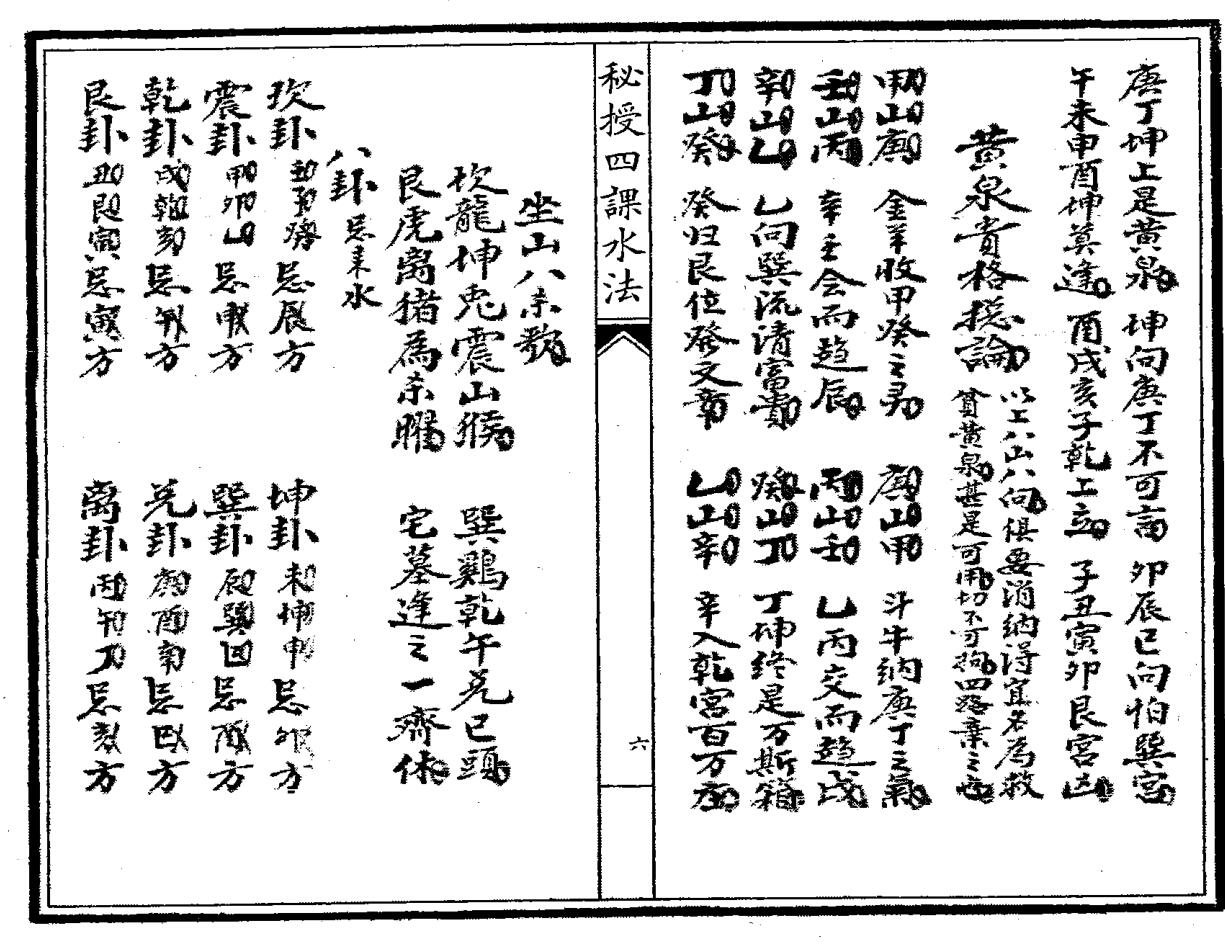 庚丁坤上是黄泉 坤向庚丁不可言 卯辰巳向怕巽宫
午未申酉坤莫逢 酉戌亥子乾上立 子丑寅卯艮宫凶
黄泉贵格捴論 以上八山八向俱要消納得宜名為救
貧黄泉甚是可用切不可拘四路棄之也
甲山庚 金羊收甲癸之灵 庚山甲 斗牛納庚丁之氣
壬山丙 辛壬会而趋辰 丙山壬 乙丙交而趨戌
辛山乙 乙向巽流清富貴 癸山丁 丁坤终是万斯箱
丁山癸 癸归艮位發文章 乙山辛 辛入乾宫百万庄
秘授四課水法
六
坐山八杀歌
坎龍坤兎震山猴 巽鷄乾午兑巳頭
艮虎离猪為杀曜 宅墓逢之一齊休
八卦忌来水
坎卦 壬子癸 忌辰方 坤卦 未坤申 忌卯方
震卦 甲卯乙 忌申方 巽卦 辰巽巳 忌酉方
乾卦 戌乾亥 忌午方 兑卦 庚酉辛 忌巳方
艮卦 丑艮寅 忌寅方 离卦 丙午丁 忌亥方